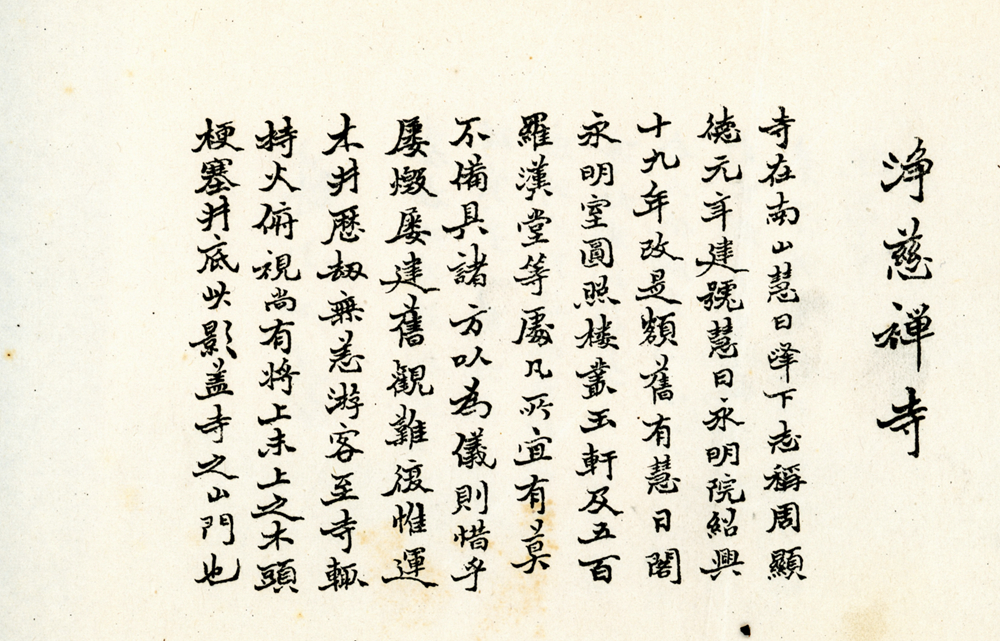 淨慈禅寺
寺在南山慧日峰下志稱周顯
徳元年建號慧日永明院紹興
十九年改是額舊有慧日閣
永明室圓照楼叢玉軒及五百
羅漢堂等處凡所宜有莫
不備具諸方以為儀則惜乎
屡燬屡建舊觀難復惟運
木井歷刼無恙游客至寺輒
持火俯視尚有將上未上之木頭
梗塞井底此影盖寺之山門也